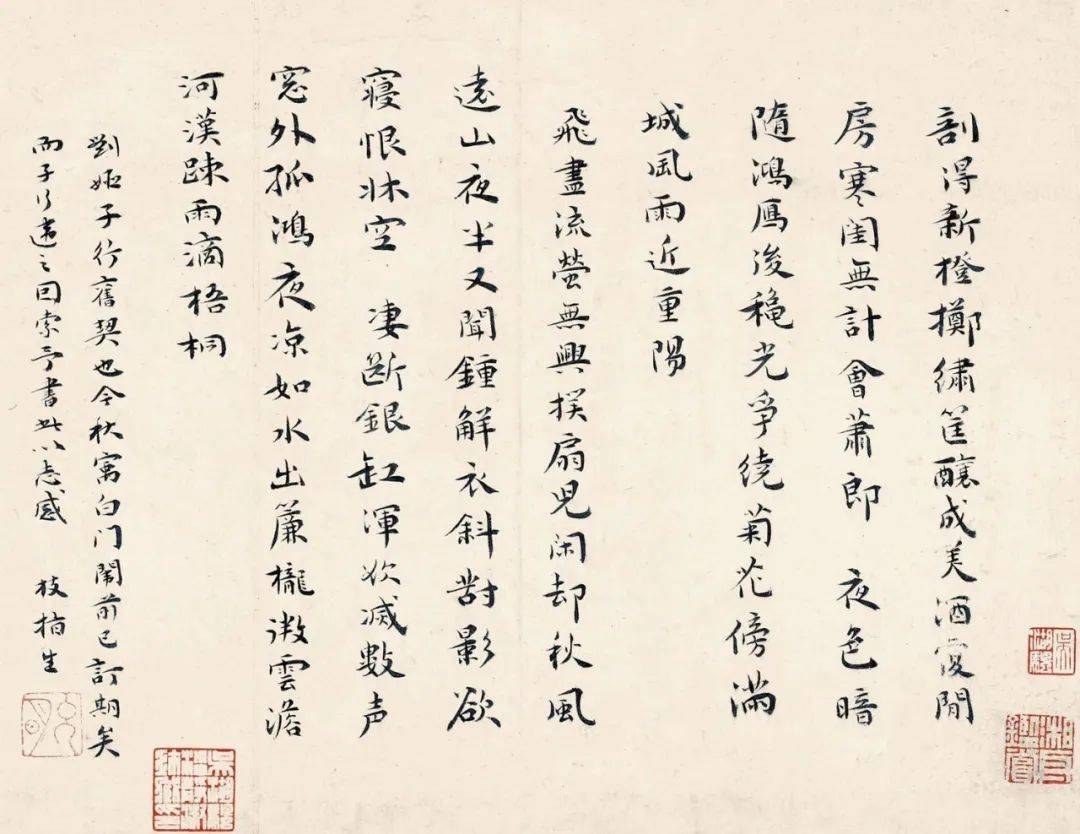 剖得新橙擲繡筐釀成美酒復閒
房寒閨無計會蕭郎 夜色暗
隨鴻鴈後穐光爭繞菊花傍滿
城風雨近重陽
飛盡流螢無興撲扇兒闲却秋風
遠山夜半又聞鍾解衣斜對影欲
寢恨牀空 淒斷銀缸渾欲滅數声
窓外孤鴻夜凉如水出簾櫳微雲澹
河漢踈雨滴梧桐
劉姬子行舊契也今秋寓白门闈前已訂期矣
而子行遣之因索予書此以志感 枝指生